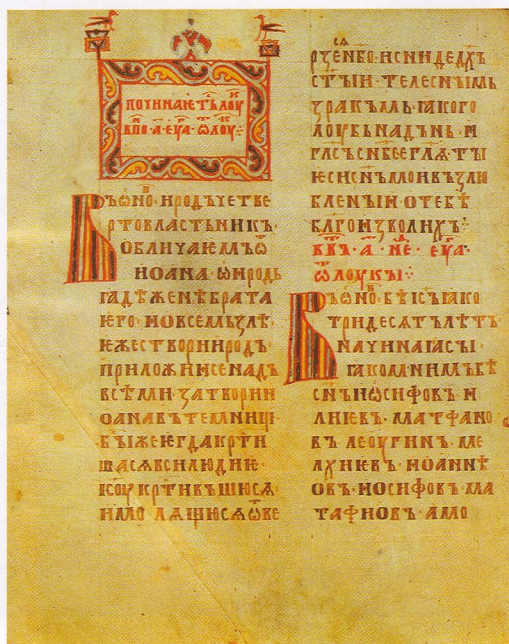 ПОЧИНАѤТЬ ЛОУК
ВПО·А·ЕУА ѾЛОУ
ВЪѠНОВ·ИРОДЪ ЧЕТВЕ
РТОВЛАСТЬНИКЪ·
ОБЛИЧАѤМЪ Ѿ
ИОАНА·Ѡ ИРОДЬ
ꙖДѢ ЖЕНѢ БРАТА
ѤГО·И ОВСЕМЬ ЗЛѢ
ѤЖЕ СТВОРИ ИРОДЪ·
ПРИЛОЖИ И СЕ НАДЪ
ВСѢМИ·ЗАТВОРИ И
ОАНА ВЪ ТЕМНИЦИ
БЫ ЖЕ ѤГДА КРТИ
ШАСѦ ВСИ ЛЮДИѤ·
ІСОУ КРТИВЪШЮСѦ
И МОЛѦЩЮСѦ ѾВЕ
РЗЕСѦ НБО·И СНИДЕ ДХЪ
СТЫИ·ТЕЛЕСНЫМЬ
ЗРАКЪМЬ·ꙖКО ГО
ЛОУБЬ НАДЪ НЬ·И
ГЛСЪ СЪ НБСЕ ГЛѦ·ТЫ
ѤСИ СНЪ МОИ ВЪЗЛЮ
БЛЕНЫИ О ТЕБѢ
БЛГОИЗВОЛИХЪ:
ВВЪ·А·НЕД·ЕУА
ѾЛОУКЫ:
ВЪѠНОВ·БѢ ІСЪ ꙖКО
ТРИДЕСѦТЪ ЛѢТЪ
НАЧИНАꙖ СЫ
ꙖКО МНИМЪ БѢ
СНЪ ИѠСИФОВЪ·И
ЛИѤВЪ·МАТФАНО
ВЪ·ЛЕОУГИНЪ·МЕ
ЛХИѤВЪ·ИОАННѢ
ОВЪ·ИОСИФОВЪ·МА
ТАФИОВЪ·АМО